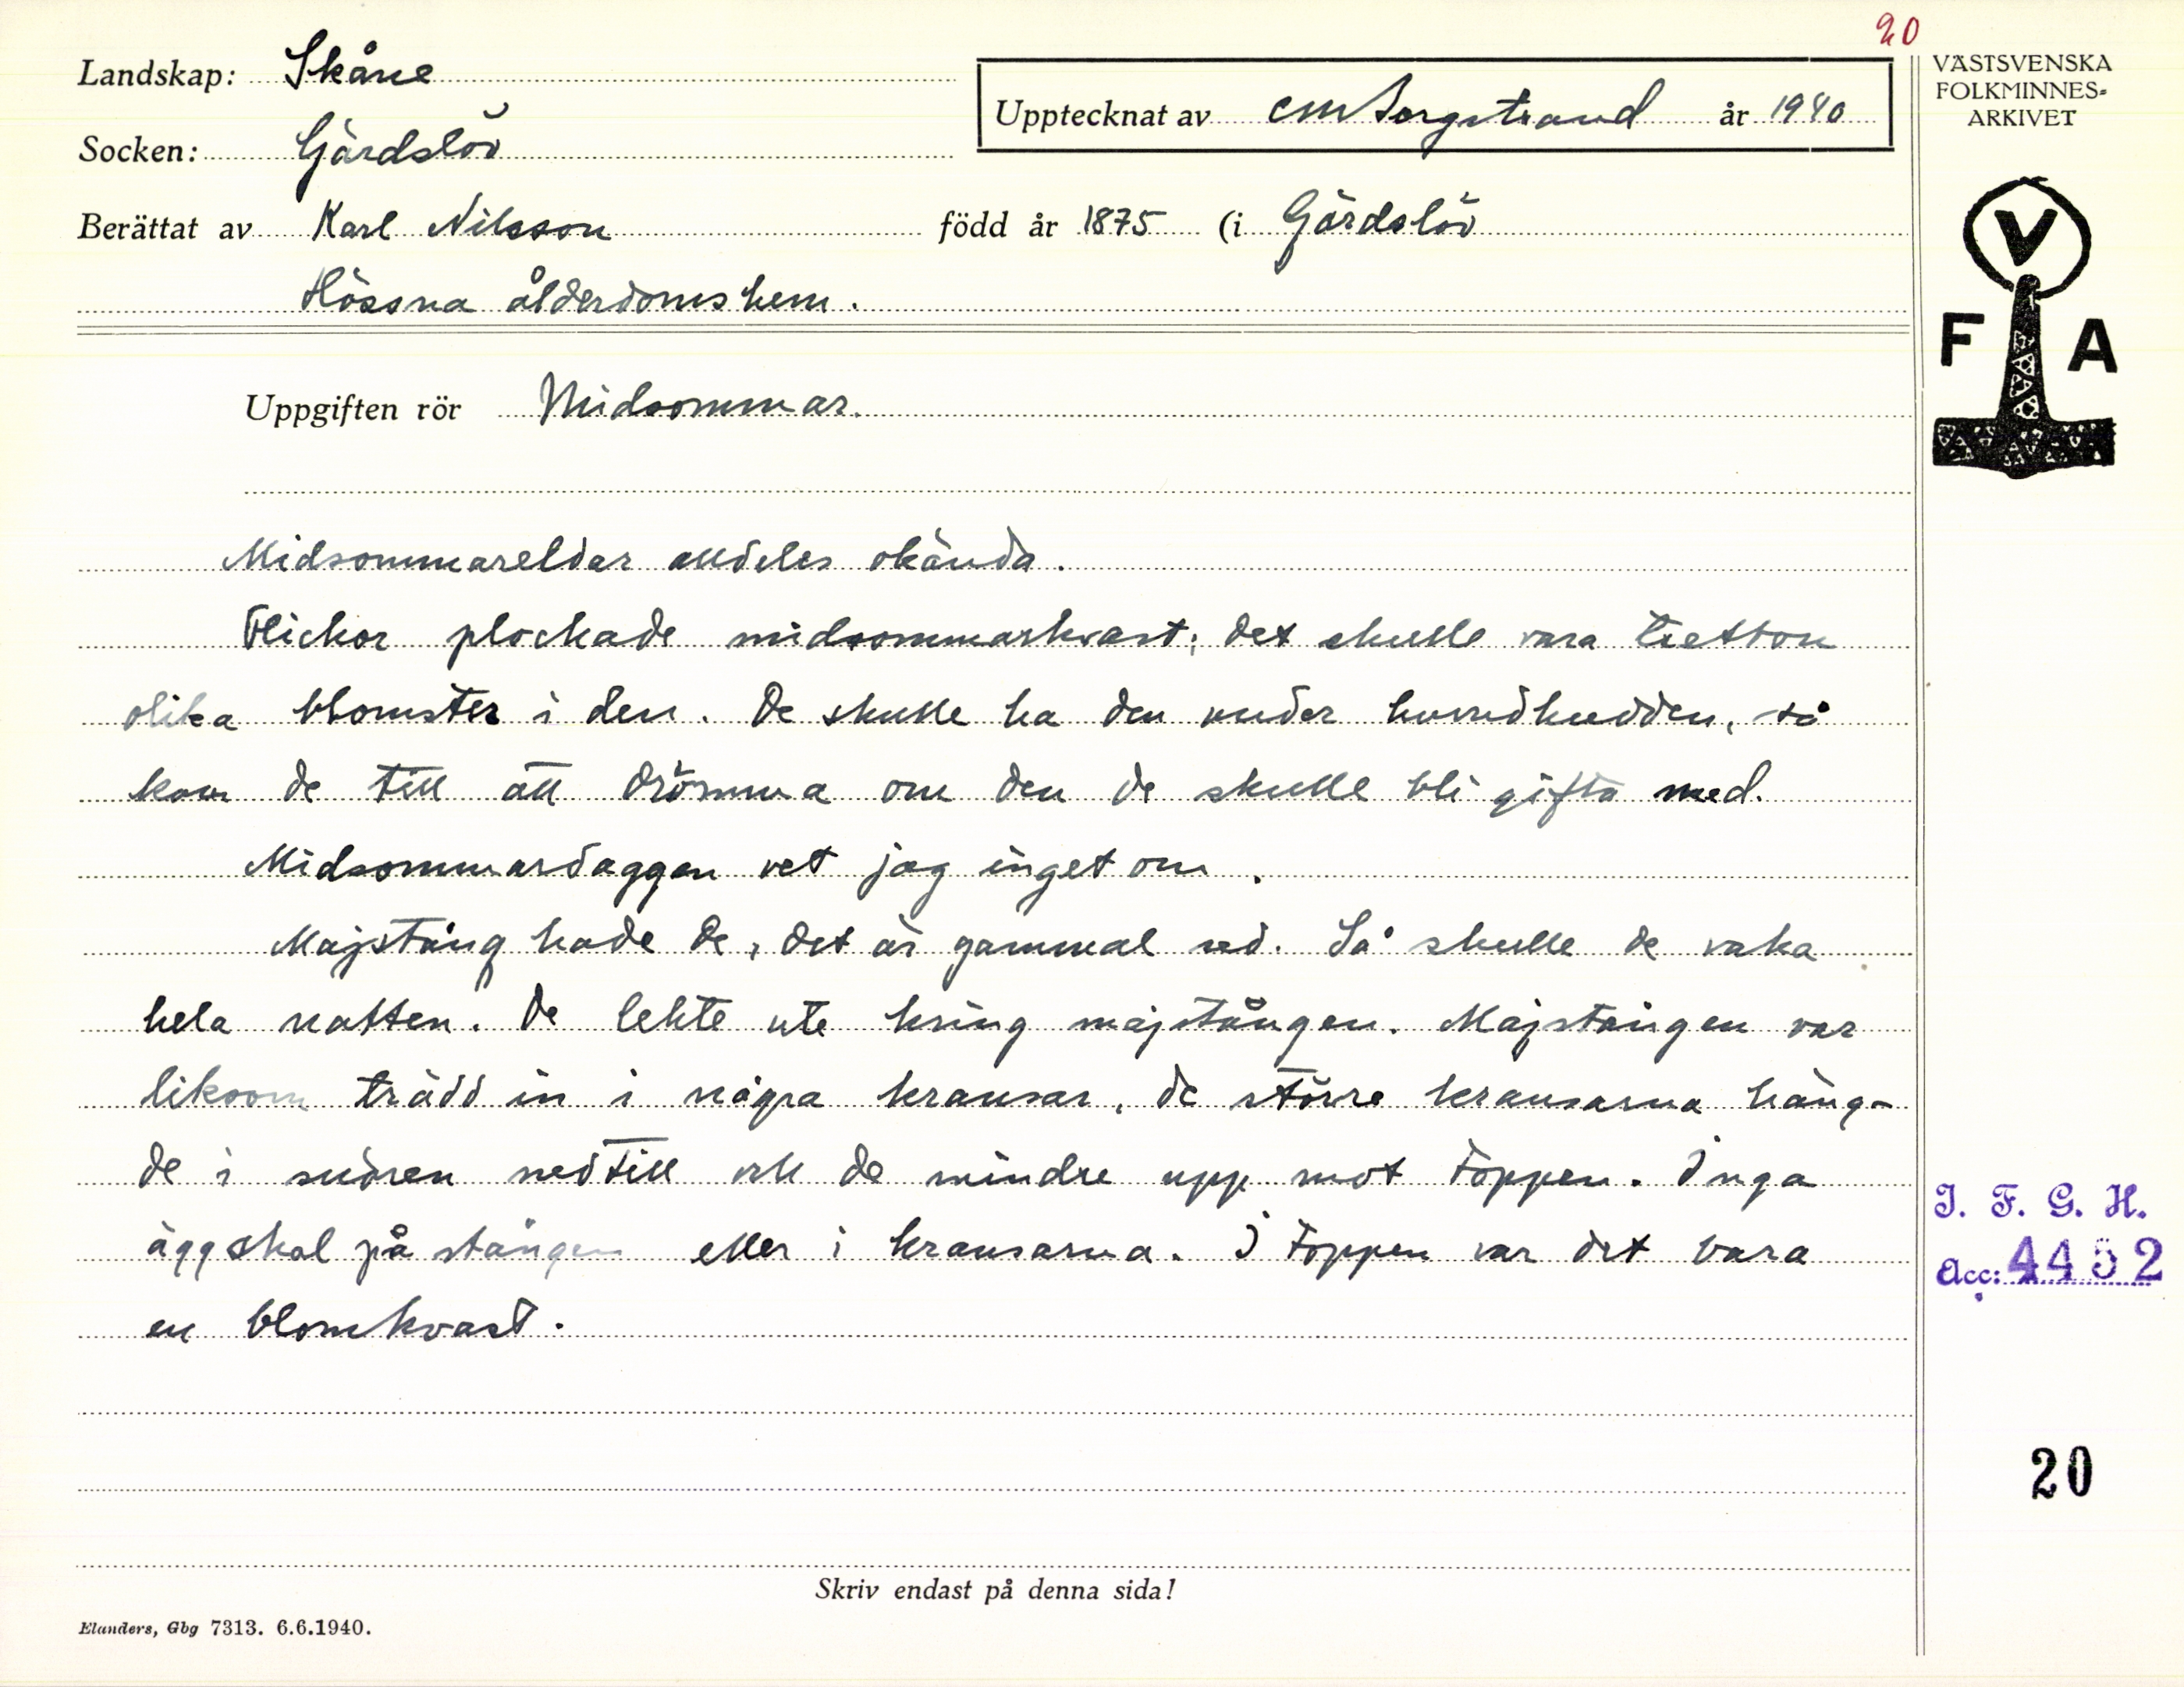 20
Landskap: Skåne
Upptecknat av CM Bergstrand år 1940
VÄSTSVENSKA
FOLKMINNES-
ARKIVET
Socken: Gärdslöv
Berättat av Karl Nilsson född år 1875 (i Gärdslöv
Hössna ålderdomshem.
V
F A
Uppgiften rör Midsommar.
Midsommareldar alldeles okända.
Flickor plockade midsommarkvast; det skulle vara tretton
olika blomster i den. De skulle ha den under huvudkudden, så
kom de till att drömma om den de skulle bli gifta med.
Midsommardaggen vet jag inget om.
Majstång hade de, det är gammal sed. Så skulle de vaka
hela natten. De lekte ute kring majstången. Majstången var
liksom trädd in i några kransar, de större kransarna häng-
de i snören nedtill och de mindre upp mot toppen. Inga
äggskal på stången eller i kransarna. I toppen var det bara
en blomkvast.
I. F. G. H.
Acc: 4452
20
Skriv endast på denna sida!
Elanders, Gbg 7313. 6.6.1940.